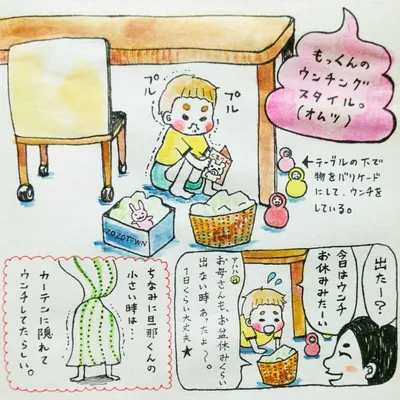 もっくんの
ウンチング
スタイル。
(オムツ)
プル
プル
←テーブルの下で
物をバリケード
にして、ウンチを
している。
ZOZOTOWN
ちなみに旦那くんの
小さい時は…
カーテンに隠れて
ウンチしてたらしい。
出たー?
今日はウンチ
お休みみたーい
アハハ
お母さんも、お盆休みくらい
出ない時あったよ〜。
1日くらい大丈夫★